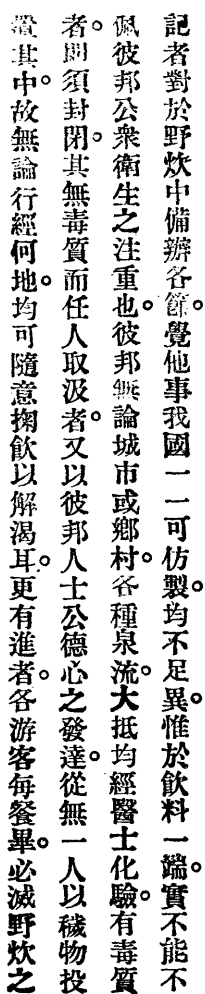 記者對於野炊中備辦各節。覺他事我國一一可仿製。均不足異。惟於飲料一端。實不能不
佩彼邦公衆衛生之注重也。彼邦無論城市或鄉村。各種泉流。大抵均經醫士化驗。有毒質
者。則須封閉。其無毒質而任人取汲者。又以彼邦人士公德心之發達。從無一人以穢物投
置其中。故無論行經何地。均可隨意掬飲以解渴耳。更有進者。各游客每餐畢。必滅野炊之